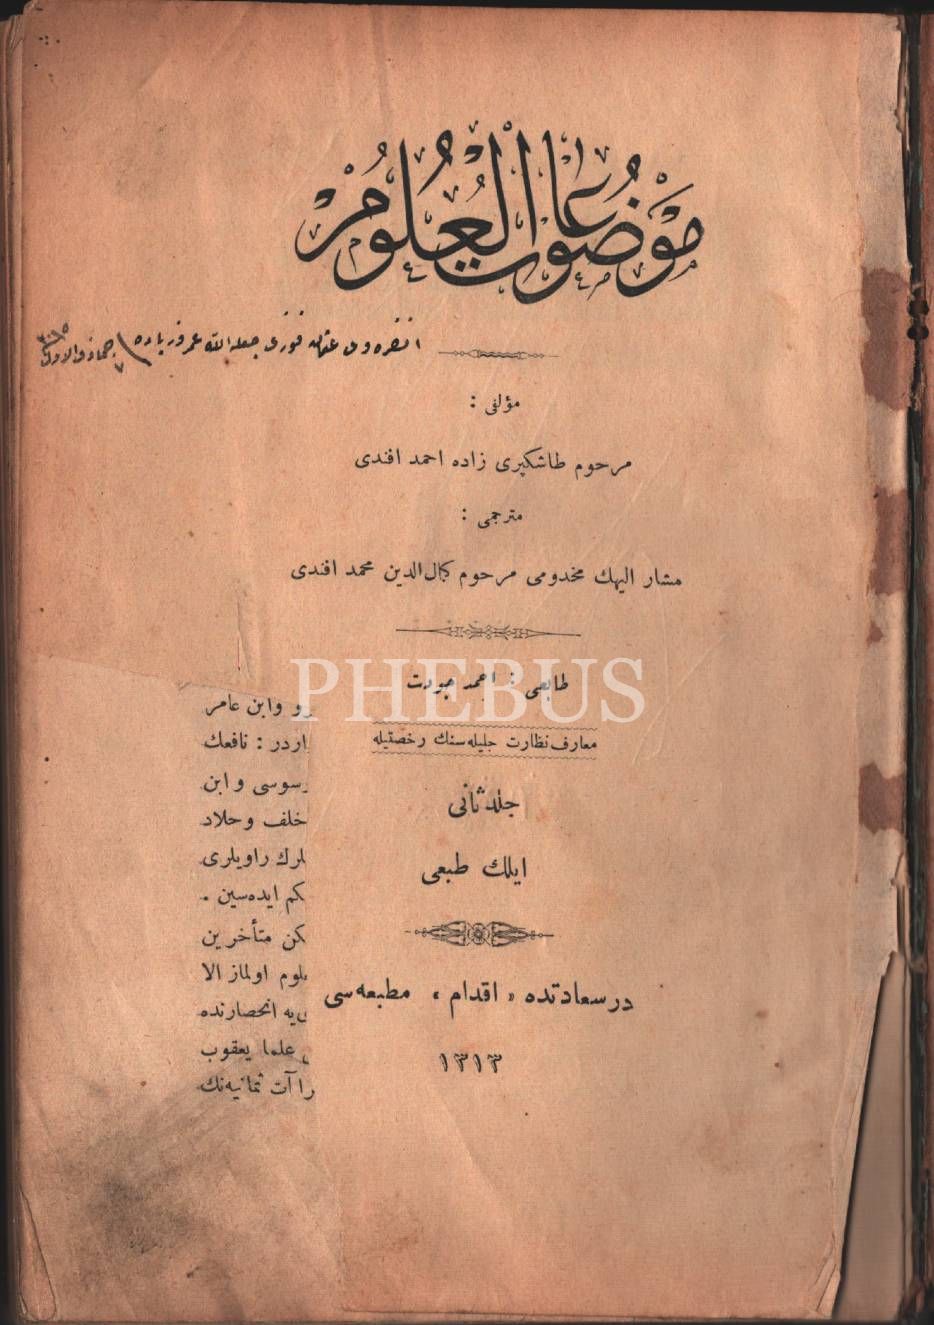 موضوعات العلوم
مؤلفی :
مرحوم طاشکپری زاده احمد افندی
مترجمی :
مشار الیهك مخدومی مرحوم کمال‌الدین محمد افندی
PHEBUS
طابعی : احمد جودت
معارف نظارت جلیله‌سنك رخصتیله
جلد ثانی
ایلك طبعی
درسعادتده « اقدام » مطبعه‌سی
۱۳۱۳
و وابن عامر
اردر : نافعك
سوسی و ابن
خلف وحلاد
لرك راویلری
کم ایده‌سین .
کن متأخرین
لوم اولماز الا
یه انحصارنده
علما یعقوب
را آت ثمانیه‌نك